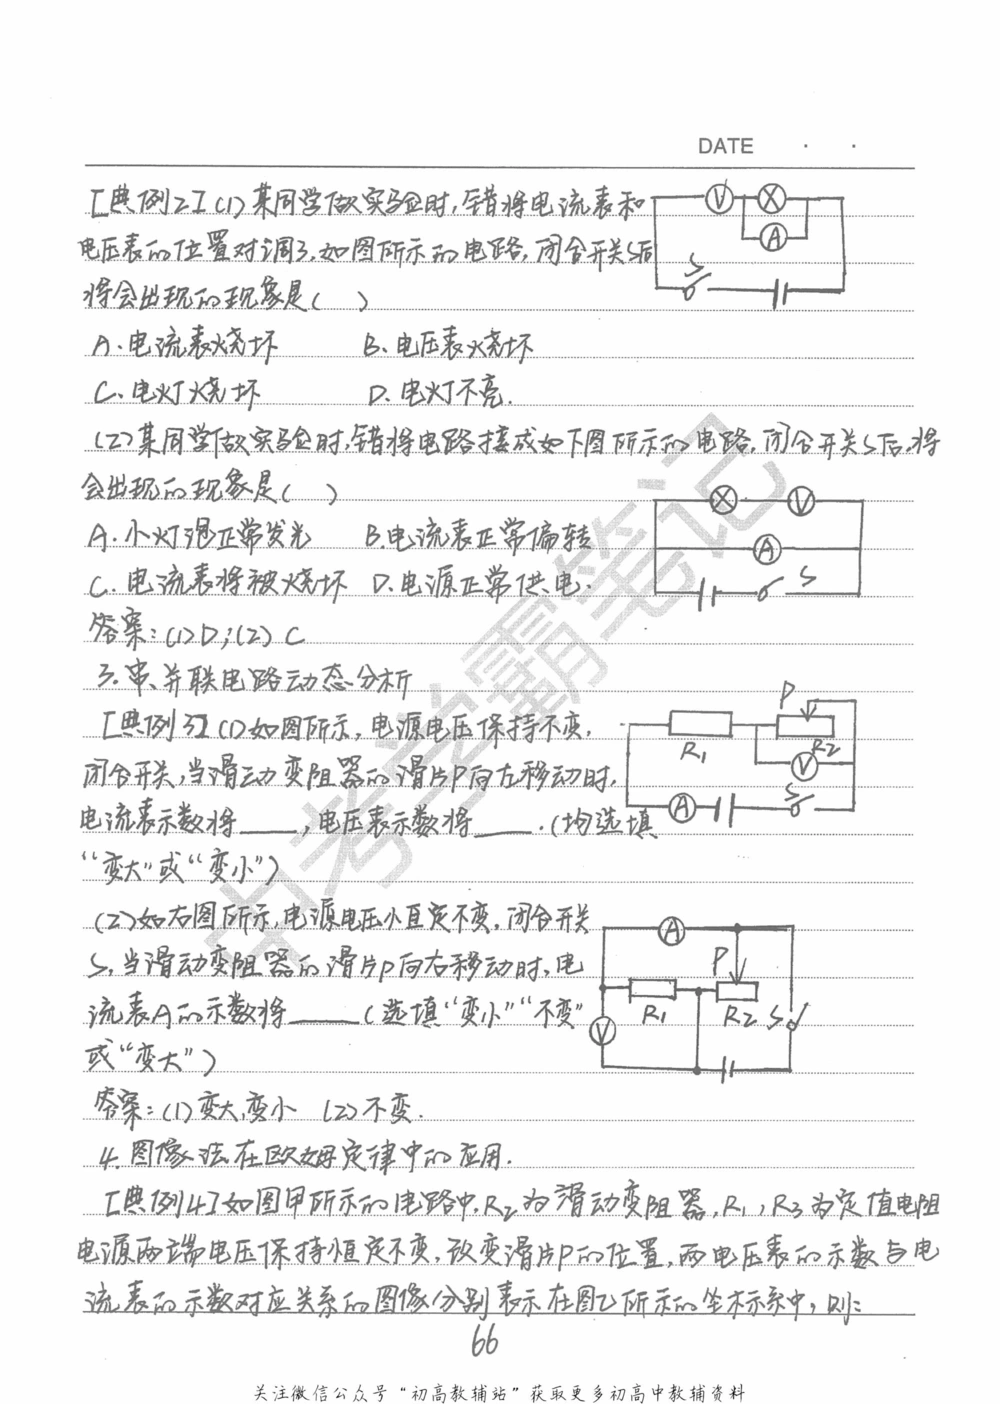 DATE · ·
[典例2] (1) 某同学做实验时,错将电流表和
电压表的位置对调了,如图所示的电路,闭合开关S后
将会出现的现象是( )
A.电流表烧坏 B.电压表烧坏
C.电灯烧坏 D.电灯不亮.
(2)某同学做实验时,错将电路接成如下图所示的电路,闭合开关S后,将
会出现的现象是( )
A.小灯泡正常发光 B.电流表正常偏转
C.电流表将被烧坏 D.电源正常供电.
答案:(1)D;(2)C
3.串、并联电路动态分析
[典例3] (1)如图所示,电源电压保持不变,
闭合开关,当滑动变阻器的滑片P向左移动时,
电流表示数将____,电压表示数将____.(均选填
“变大”或“变小”)
(2)如右图所示,电源电压恒定不变,闭合开关
S,当滑动变阻器的滑片P向右移动时,电
流表A的示数将____(选填“变小”“不变”
或“变大”)
答案:(1)变大,变小 (2)不变.
4.图像法在欧姆定律中的应用.
[典例4]如图甲所示的电路中,R2为滑动变阻器,R1,R3为定值电阻
电源两端电压保持恒定不变,改变滑片P的位置,两电压表的示数与电
流表的示数对应关系的图像分别表示在图乙所示的坐标系中,则:
V X
A
S
X V
A
S
P
R1 R2
V
A S
A
P
R1 R2 S
V
66
中考学霸笔记
关注微信公众号“初高教辅站”获取更多初高中教辅资料